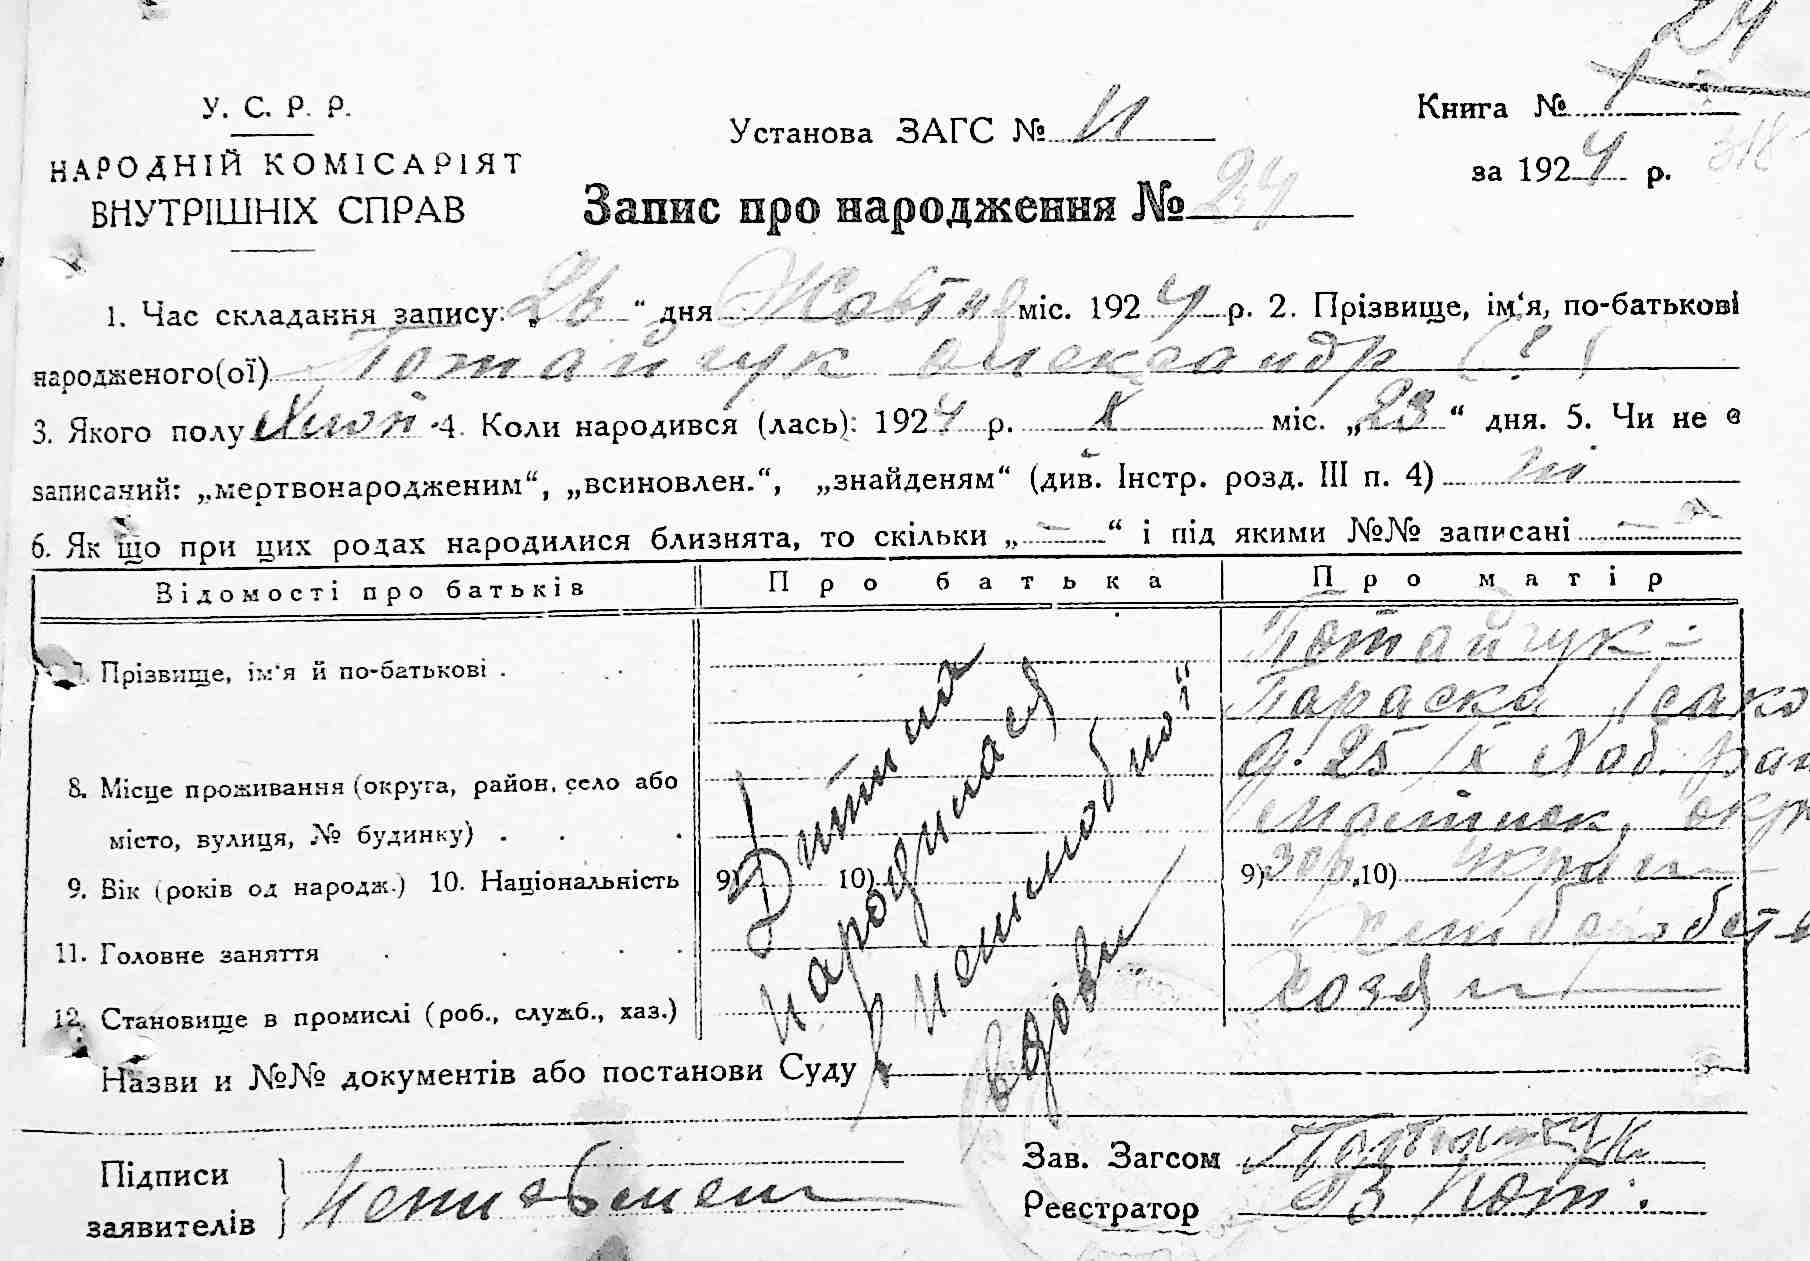 24
У. С. Р. Р.
НАРОДНІЙ КОМІСАРІЯТ
ВНУТРІШНІХ СПРАВ
Установа ЗАГС №
Книга № 1
за 1924 р. 318
Запис про народження № 24
1. Час складання запису: „26“ дня Жовтня міс. 1924 р. 2. Прізвище, ім‘я, по-батькові
народженого(ої) Потайчук Олександр (?)
3. Якого полу Хлоп. 4. Коли народився (лась): 1924 р. X міс. „23“ дня. 5. Чи не є
записаний: „мертвонародженим“, „всиновлен.“, „знайденям“ (див. Інстр. розд. III п. 4) ні
6. Як що при цих родах народилися близнята, то скільки „—“ і під якими №№ записані —
Відомості про батьків Про батька Про матір
7. Прізвище, ім‘я й по-батькові . Потайчук-
Параска Ісако
8. Місце проживання (округа, район, село або
місто, вулиця, № будинку) .
9. Вік (років од народж.) 10. Національність 9) 10) 9) 30 р. 10) україн
11. Головне заняття
12. Становище в промислі (роб., служб., хаз.) хозяин
Дитина
народилася
у
вдови
Назви и №№ документів або постанови Суду
Підписи
заявителів
Зав. Загсом
Реєстратор